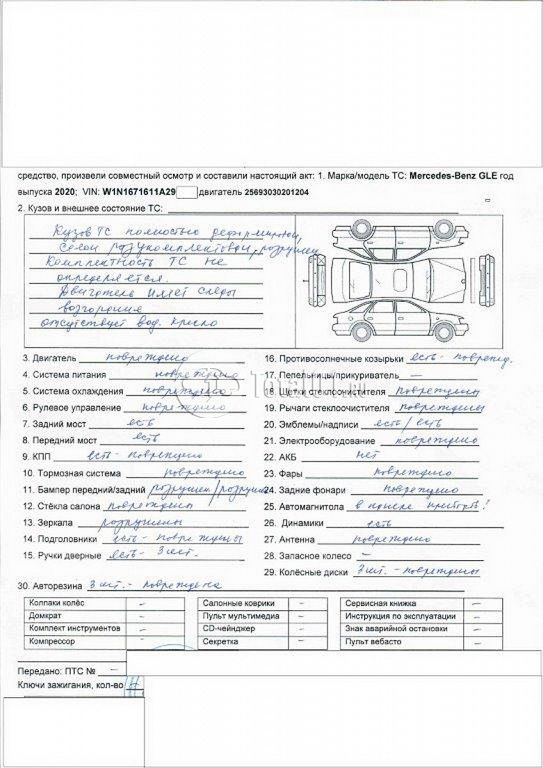 средство, произвели совместный осмотр и составили настоящий акт: 1. Марка/модель ТС: Mercedes-Benz GLE год
выпуска 2020; VIN: W1N1671611A29 двигатель 25693030201204
2. Кузов и внешнее состояние ТС:
Кузов ТС полностью деформирован,
салон разукомплектован, разрушен
Комплектность ТС не
определяется.
Двигатель имеет следы
возгорания
отсутствует вод. кресло
3. Двигатель повреждено
4. Система питания повреждено
5. Система охлаждения повреждено
6. Рулевое управление повреждено
7. Задний мост есть
8. Передний мост есть
9. КПП есть - повреждено
10. Тормозная система повреждено
11. Бампер передний/задний разрушен/разрушен
12. Стёкла салона повреждены
13. Зеркала разрушены
14. Подголовники есть - повреждены
15. Ручки дверные есть - 3 шт.
16. Противосолнечные козырьки есть - поврежд.
17. Пепельницы/прикуриватель —
18. Щетки стеклоочистителя повреждены
19. Рычаги стеклоочистителя повреждены
20. Эмблемы/надписи есть / есть
21. Электрооборудование повреждено
22. АКБ нет
23. Фары повреждено
24. Задние фонари повреждено
25. Автомагнитола в поиске приборов!
26. Динамики есть
27. Антенна повреждено
28. Запасное колесо –
29. Колёсные диски 3 шт. - повреждены
30. Авторезина 3 шт. - повреждена
Колпаки колёс –
Домкрат –
Комплект инструментов –
Компрессор –
Салонные коврики –
Пульт мультимедиа –
CD-чейнджер –
Секретка –
Сервисная книжка –
Инструкция по эксплуатации –
Знак аварийной остановки –
Пульт вебасто –
Передано: ПТС № —
Ключи зажигания, кол-во